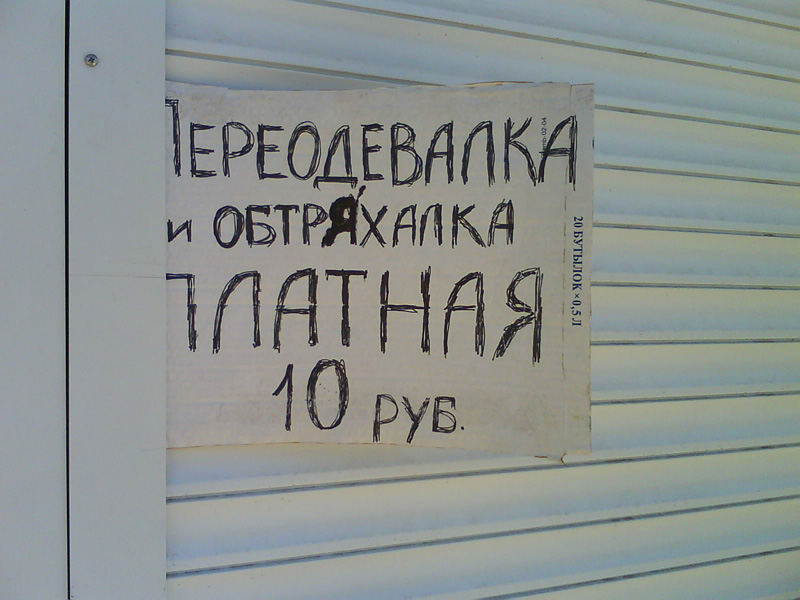 ПЕРЕОДЕВАЛКА
и ОБТРЯХАЛКА
ПЛАТНАЯ
10 РУБ.
20 БУТЫЛОК × 0,5 Л